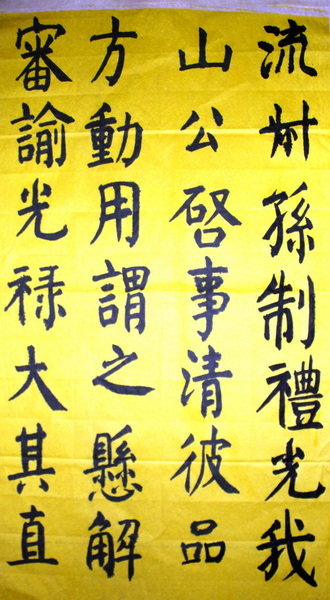 流叔孫制禮光我
山公啓事清彼品
方動用謂之懸解
審諭光禄大其直